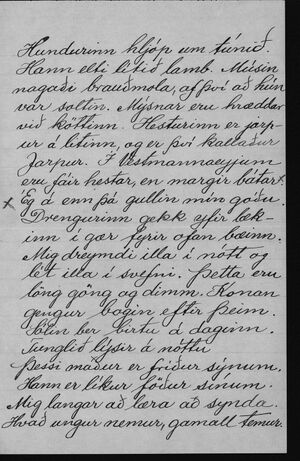 Hundurinn hljóp um túnið.
Hann elti lítið lamb. Músin
nagaði brauðmola, af því að hún
var soltin. Mýsnar eru hræddar
við köttinn. Hesturinn er jarp-
ur á litinn, og er því kallaður
Jarpur. Í Vestmannaeyjum
eru fáir hestar, en margir bátar.
× Eg á enn þá gullin mín góðu.
Drengurinn gekk eyfir læk-
inn í gær fyrir ofan bæinn.
Mig dreymdi illa í nótt og
lét illa í svefni. Þetta eru
löng göng og dimm. Konan
gengur bogin eftir þeim.
Sólin ber birtu á daginn.
Tunglið lýsir á nóttu
Þessi maður er fríður sýnum.
Hann er líkur föður sínum.
Mig langar að læra að synda.
Hvað ungur nemur, gamall temur.